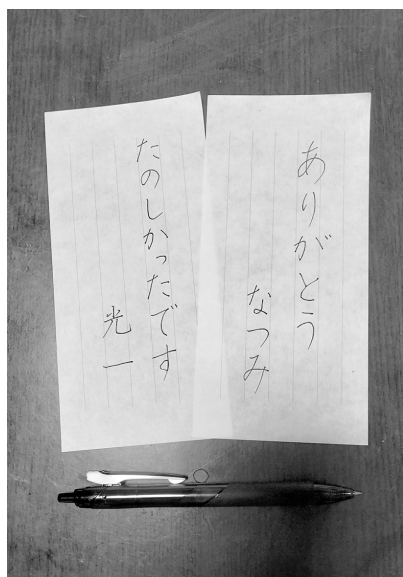 ありがとう
なつみ
たのしかったです
光一